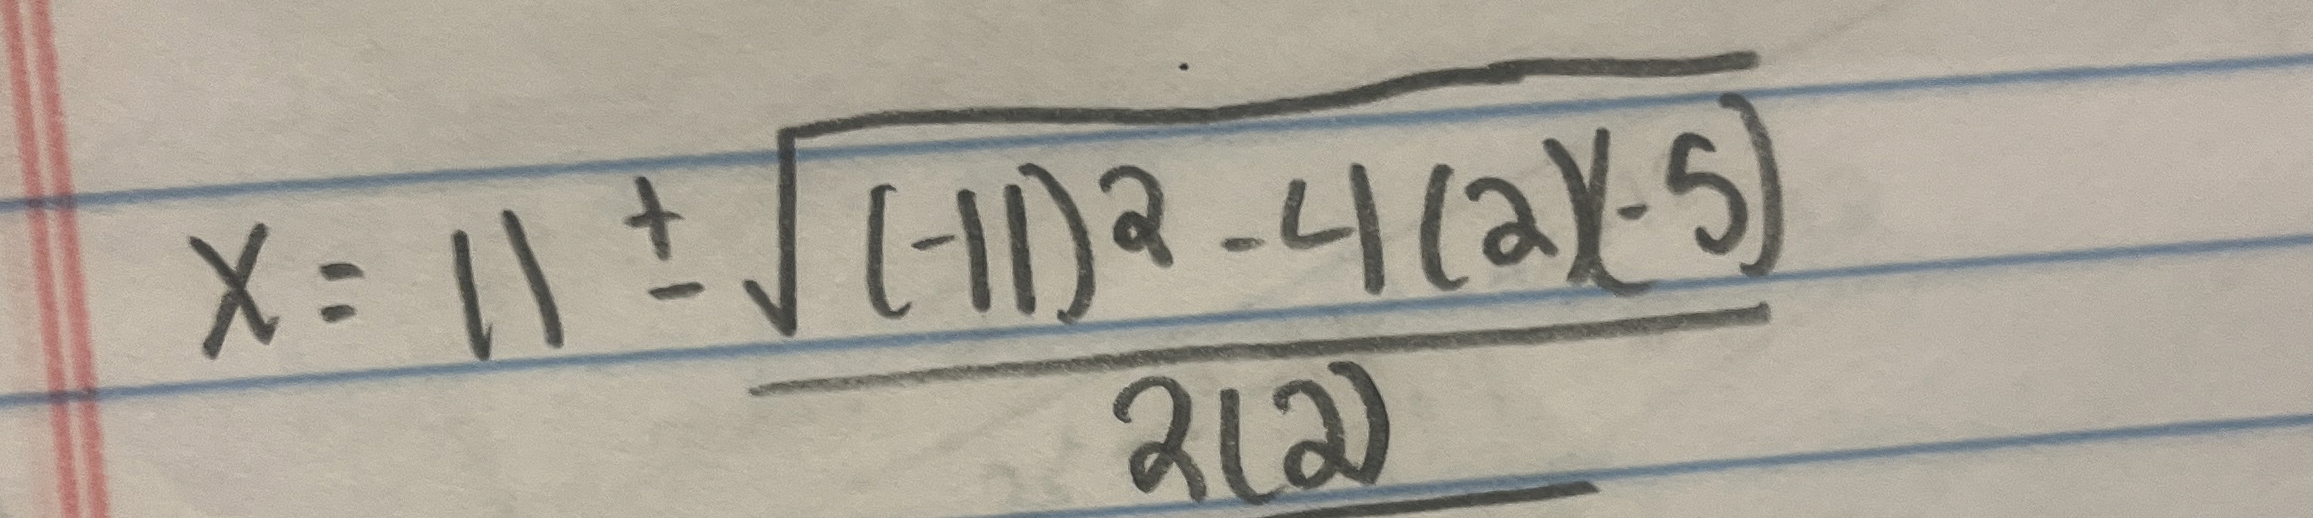 x = 11 ± √(-11)² - 4(2)(-5)
2(2)